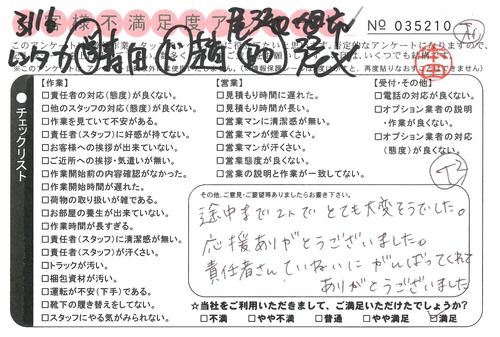 3/16
客様不満足度ア
№ 035210
【作業】
□責任者の対応(態度)が良くない。
□他のスタッフの対応(態度)が良くない。
□作業を見ていて不安がある。
□責任者(スタッフ)に好感が持てない。
□お客様への挨拶が出来ていない。
□ご近所への挨拶・気遣いが無い。
□作業開始前の内容確認がなかった。
□作業開始時間が遅れた。
□荷物の取り扱いが雑である。
□お部屋の養生が出来ていない。
□作業時間が長すぎる。
□責任者(スタッフ)に清潔感が無い。
□責任者(スタッフ)が汗くさい。
□トラックが汚い。
□梱包資材が汚い。
□運転が不安(下手)である。
□靴下の履き替えをしてない。
□スタッフにやる気がみられない。
【営業】
□見積もり時間に遅れた。
□見積もり時間が長い。
□営業マンに清潔感が無い。
□営業マンが煙草くさい。
□営業マンが汗くさい。
□営業態度が良くない。
□営業の説明と作業が一致してない。
【受付・その他】
□電話の対応が良くない。
□オプション業者の説明
・作業が良くない。
□オプション業者の対応
(態度)が良くない。
チェックリスト
その他、ご意見・ご要望等ありましたらお書き下さい。
途中まで2人でとても大変そうでした。
応援ありがとうございました。
責任者さんていねいにがんばってくれて
ありがとうございました
☆当社をご利用いただきまして、ご満足いただけたでしょうか?
□不満 □やや不満 □普通 □やや満足 □満足